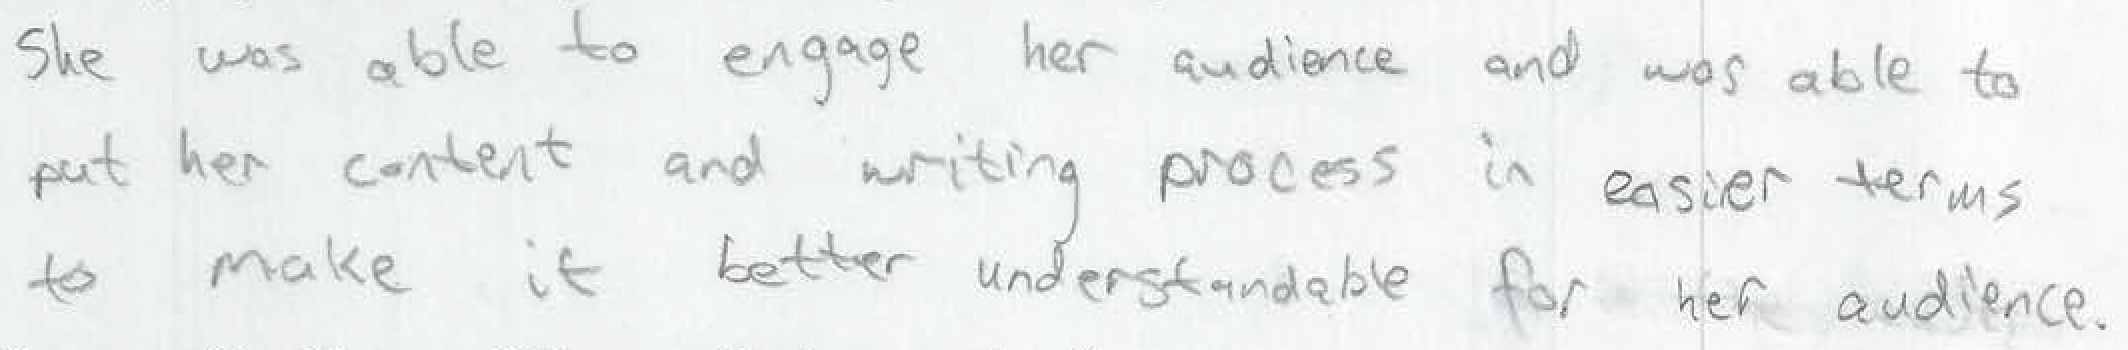 She was able to engage her audience and was able to
put her content and writing process in easier terms
to make it better understandable for her audience.